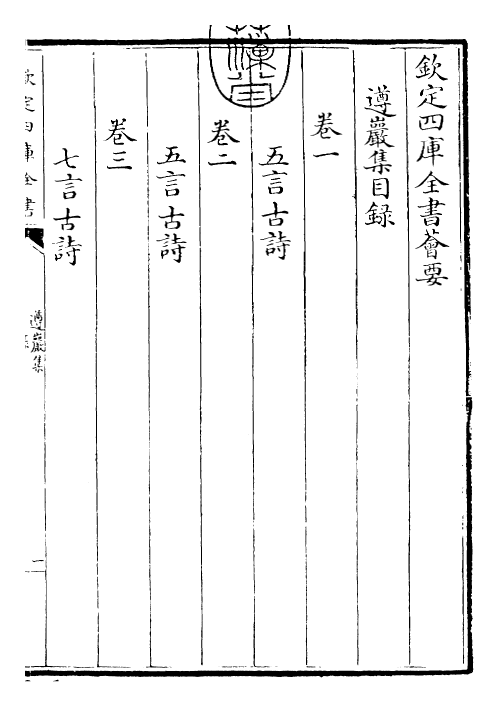 欽定四庫全書薈要
遵巖集目録
卷一
五言古詩
卷二
五言古詩
卷三
七言古詩
欽定四庫全書
遵巖集